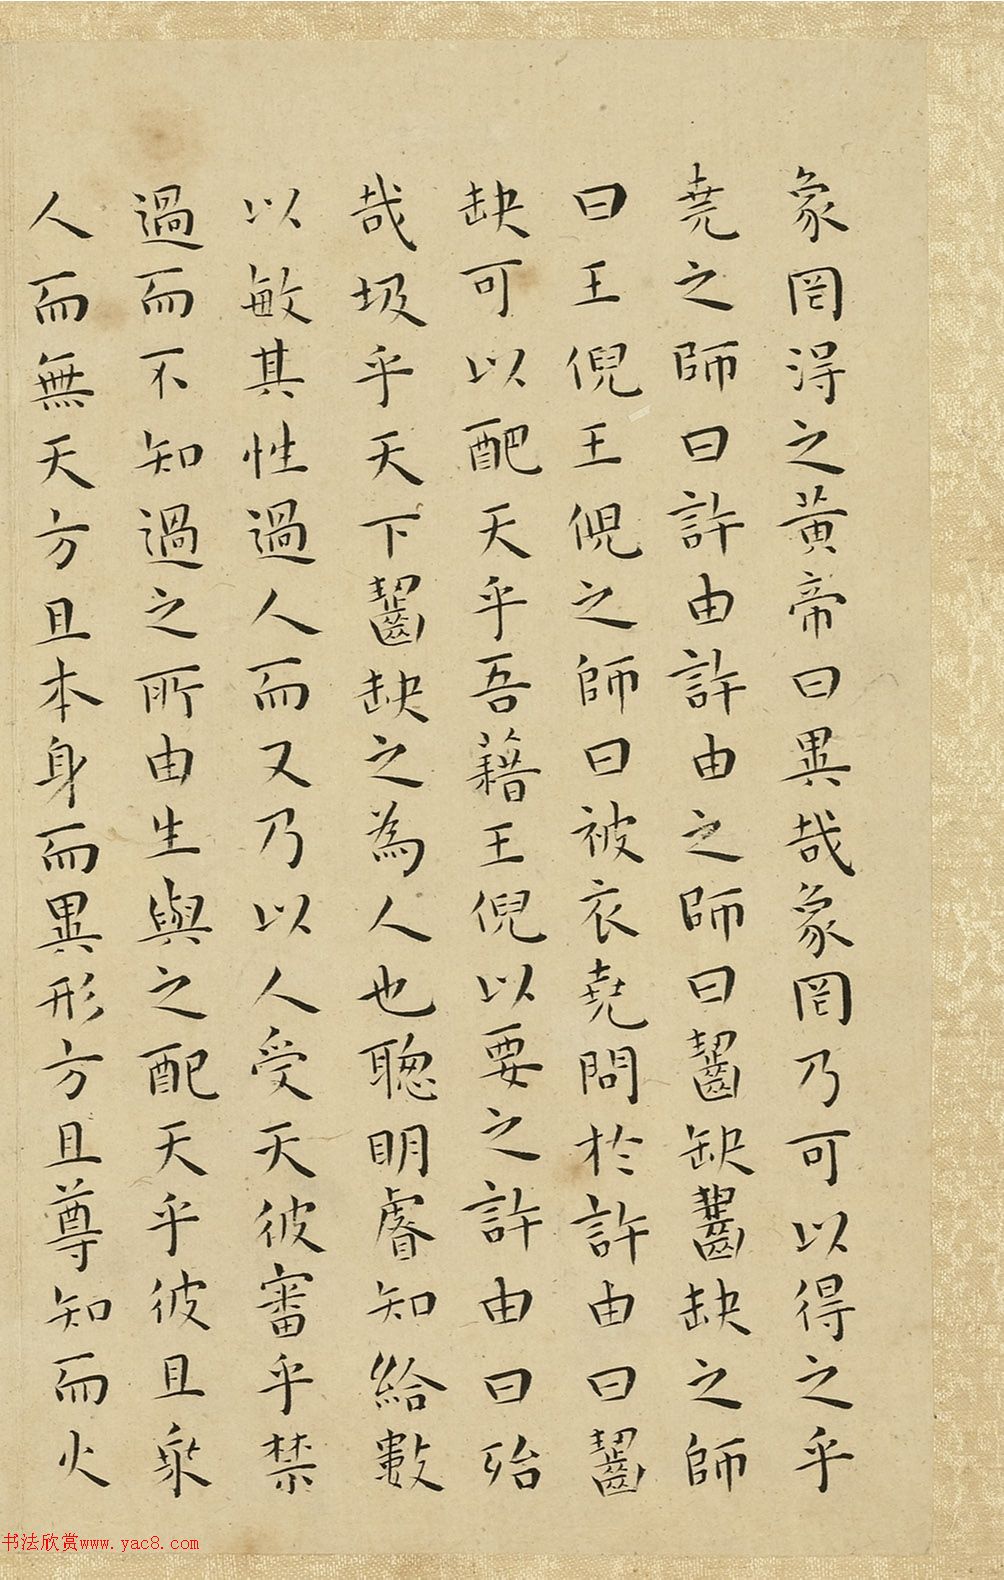 象罔得之黃帝曰異哉象罔乃可以得之乎
堯之師曰許由許由之師曰齧缺齧缺之師
曰王倪王倪之師曰被衣堯問於許由曰齧
缺可以配天乎吾藉王倪以要之許由曰殆
哉圾乎天下齧缺之為人也聰明睿知給數
以敏其性過人而又乃以人受天彼審乎禁
過而不知過之所由生與之配天乎彼且乘
人而無天方且本身而異形方且尊知而火
书法欣赏www.yac8.com